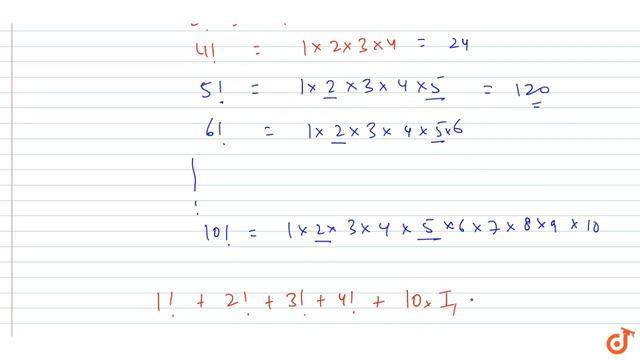 4! = 1 × 2 × 3 × 4 = 24
5! = 1 × 2 × 3 × 4 × 5 = 120
6! = 1 × 2 × 3 × 4 × 5 × 6
10! = 1 × 2 × 3 × 4 × 5 × 6 × 7 × 8 × 9 × 10
1! + 2! + 3! + 4! + 10 × I,